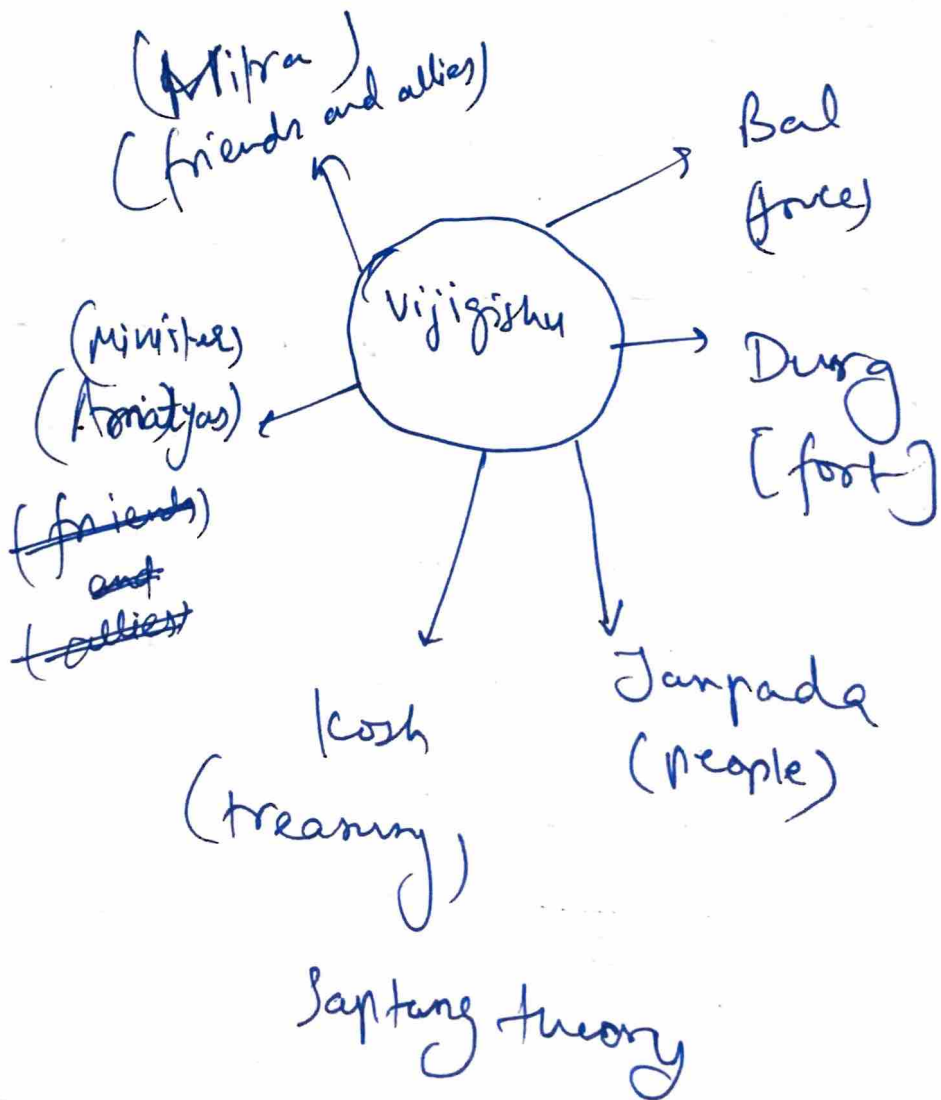 (Mitra)
(friends and allies)
Bal
(forces)
Vijigishu
(Ministers)
(Amatyas)
(friends)
and
(allies)
Durg
[fort]
Kosh
(treasury)
Janpada
(people)
Saptang theory